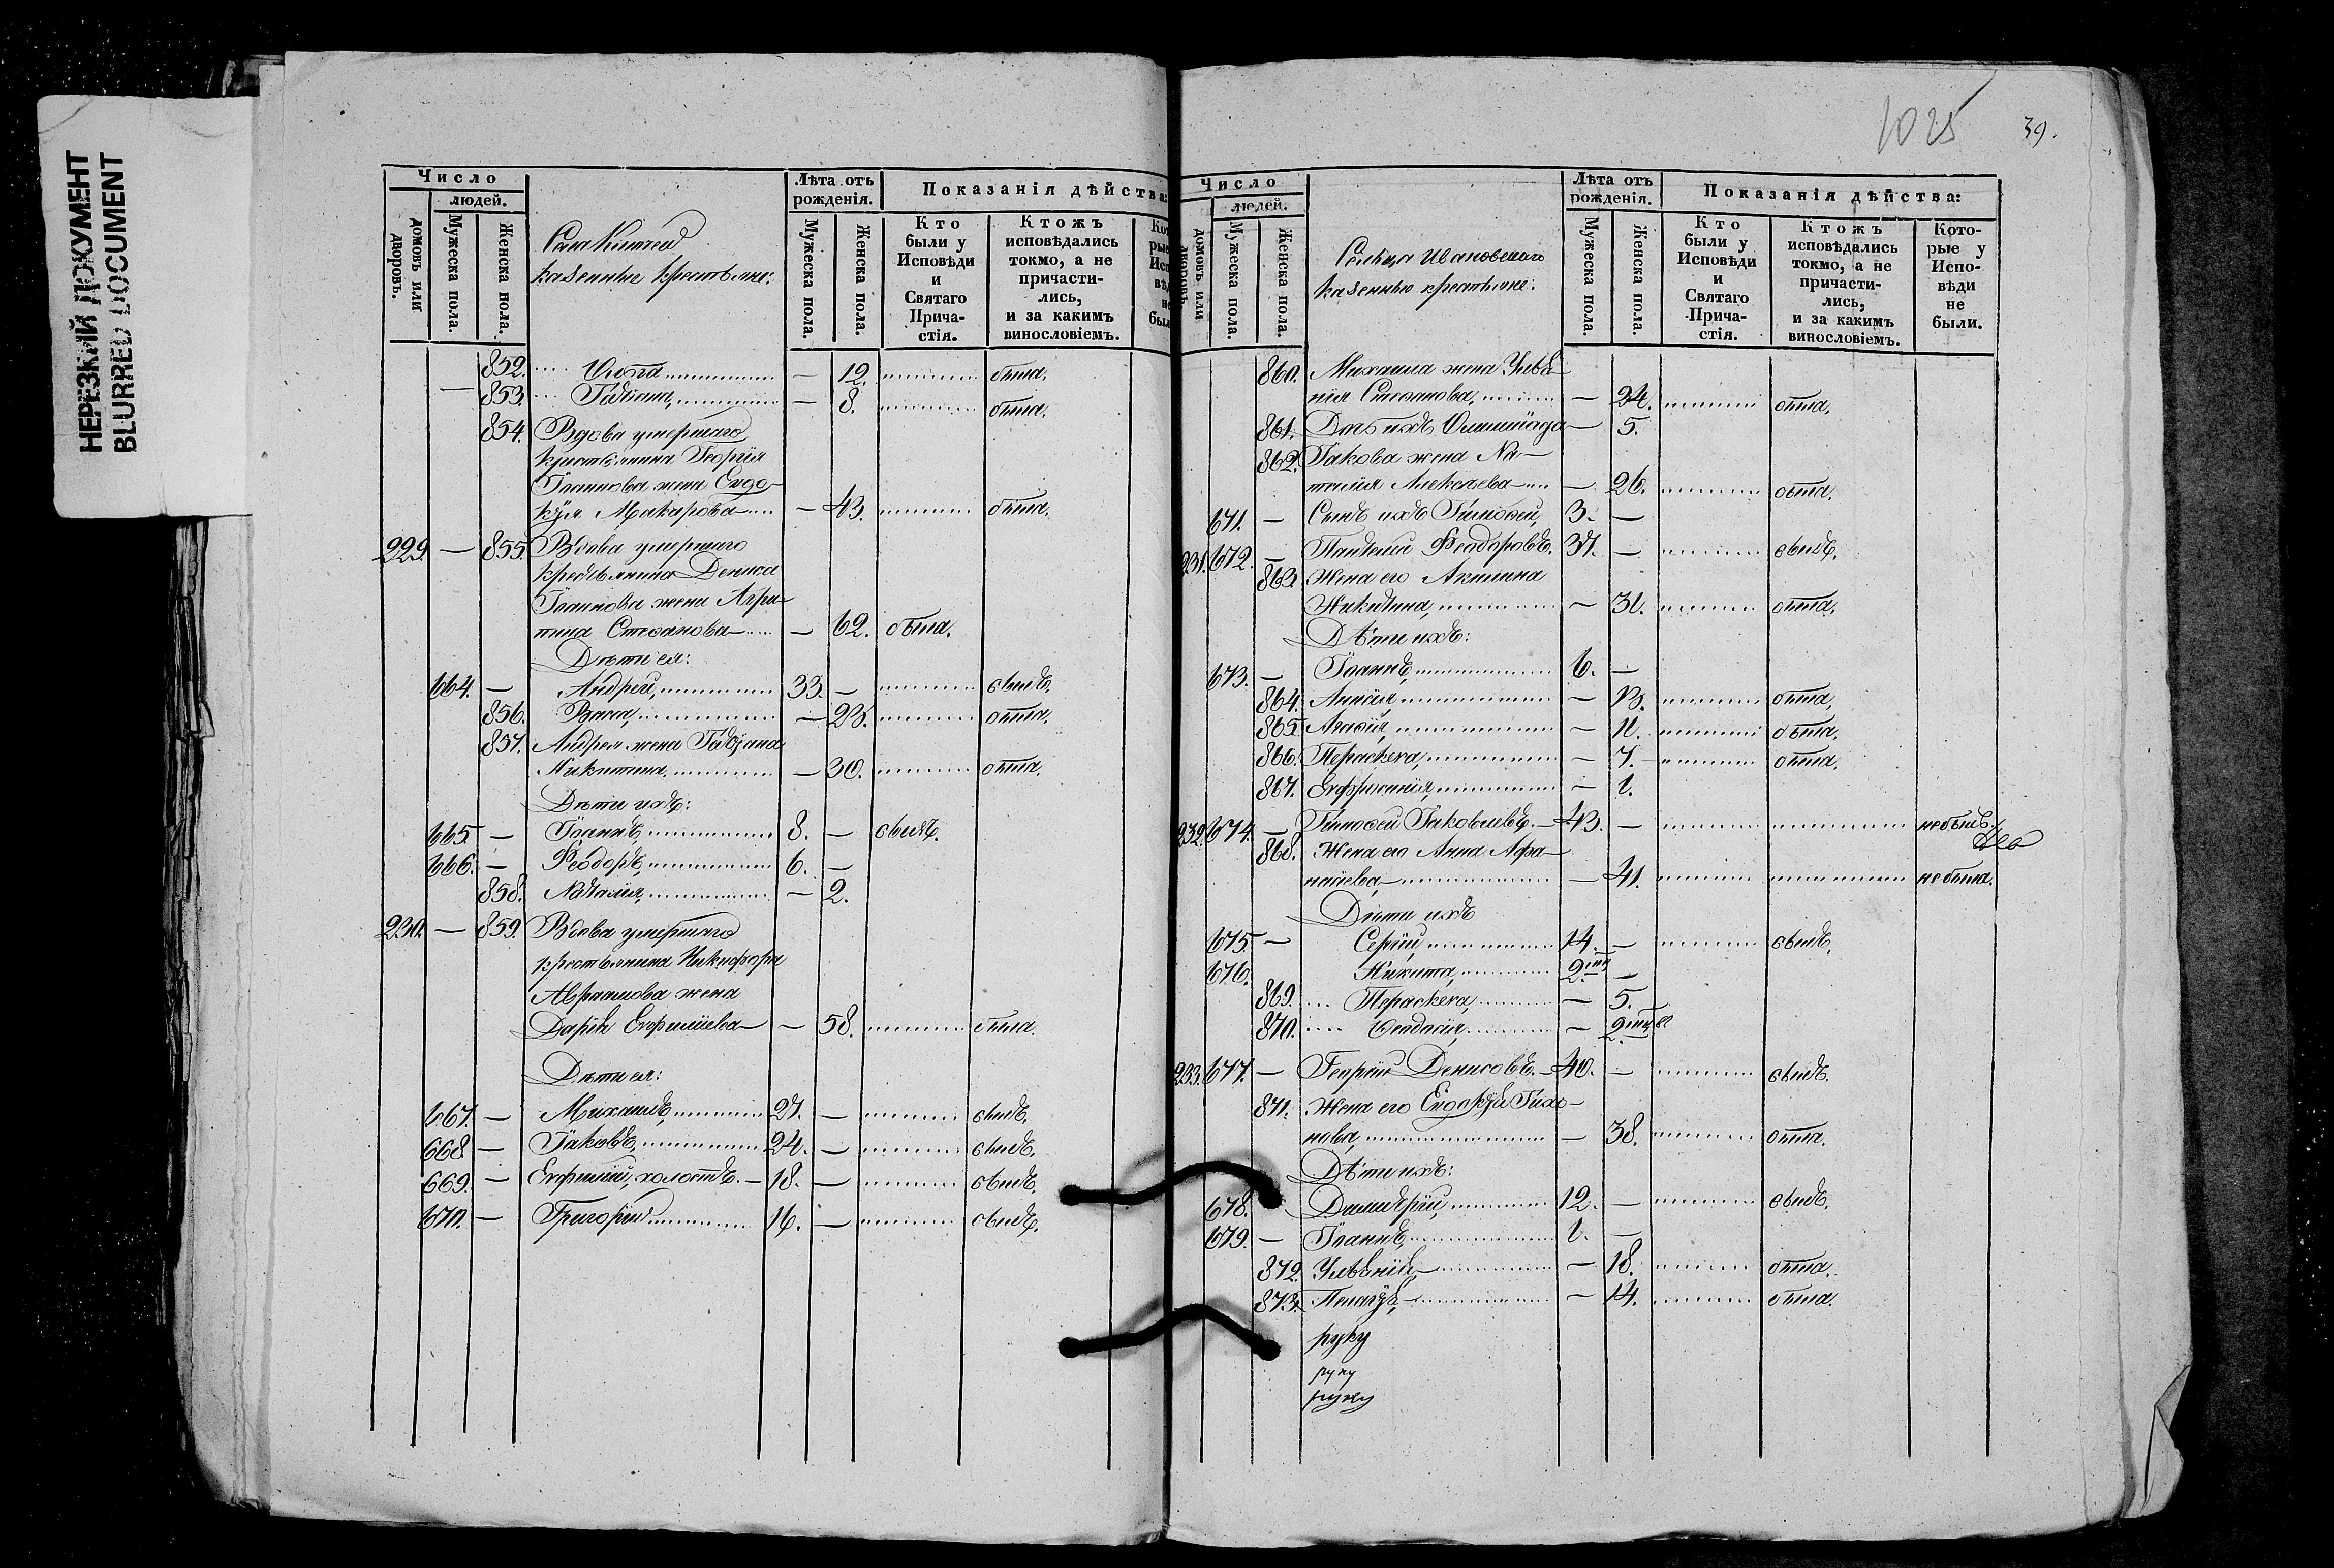 НЕРЕЗКИЙ ДОКУМЕНТ
BLURRED DOCUMENT
Число
людей.
домовъ или дворовъ.
Мужеска пола.
Женска пола.
Лѣта отъ рожденія.
Мужеска пола.
Женска пола.
Показанія дѣйства:
Кто были у Исповѣди и Святаго Прича-стія.
Ктожъ исповѣдались токмо, а не причасти-лись, и за какимъ винословіемъ.
казенные крестьяне:
852. Ольга 12. была.
853. Татіана, 8. была.
854. Вдова умершаго
крестьянина Георгія
Іоаннова жена Евдо-
кія Макарова 43. была.
229. — 855. Вдова умершаго
крестьянина Дениса
Іоаннова жена Агри-
пина Стефанова — 62. была.
Дѣти ея:
664. — Андрей, 33. — былъ.
856. Васса, — 23. была.
857. Андрея жена Татіана
Никитина — 30. была.
Дѣти ихъ:
665. — Іоаннъ, 8. — былъ.
666. — Феодоръ, 6. —
858. Наталія, — 2.
230. — 859. Вдова умершаго
крестьянина Никифора
Авраамова жена
Дарія Евфиміева — 58. была.
Дѣти ея:
667. — Михаилъ, 27. — былъ.
668. — Іаковъ, 24. — былъ.
669. — Евфимій, холостъ. — 18. — былъ.
670. — Григорій 16. — былъ.
1025
39.
Число
людей.
домовъ или дворовъ.
Мужеска пола.
Женска пола.
Лѣта отъ рожденія.
Мужеска пола.
Женска пола.
Показанія дѣйства:
Кто были у Исповѣди и Святаго Прича-стія.
Ктожъ исповѣдались токмо, а не причасти-лись, и за какимъ винословіемъ.
Кото-рые у Испо-вѣди не были.
Сельца Ивановскаго
казенные крестьяне:
860. Михаила жена Улья-
нія Стефанова, — 24. была.
861. Дочь ихъ Олимпіада — 5.
862. Іакова жена На-
талія Алексѣева — 26. была.
671. — Сынъ ихъ Тимофей, 3. —
231. 672. — Пантелий Феодоровъ. 37. — былъ.
863. Жена его Акилина
Никитина, — 31. была.
Дѣти ихъ:
673. — Іоаннъ, 6. —
864. Аннсія, — 13. была.
865. Агафія, — 11. была.
866. Параскева, — 7. была.
867. Евфросинія, — 1.
232. 674. — Тимофей Іаковлевъ. — 43. — не былъ.
868. Жена его Анна Афа-
насіева, — 41. не была.
Дѣти ихъ
675. — Сергій 14. — былъ.
676. Никита, 2. —
869. Параскева, — 5.
870. Феодосія, — 2.
233. 677. — Георгій Денисовъ. — 40. — былъ.
871. Жена его Евдокія Тихо-
нова, — 38. была.
Дѣти ихъ:
678. Димитрій, 12. — былъ.
679. — Іоаннъ, 1. —
872. Ульянія, — 18. была.
873. Пелагія, — 14. была.
руку
руку
руку